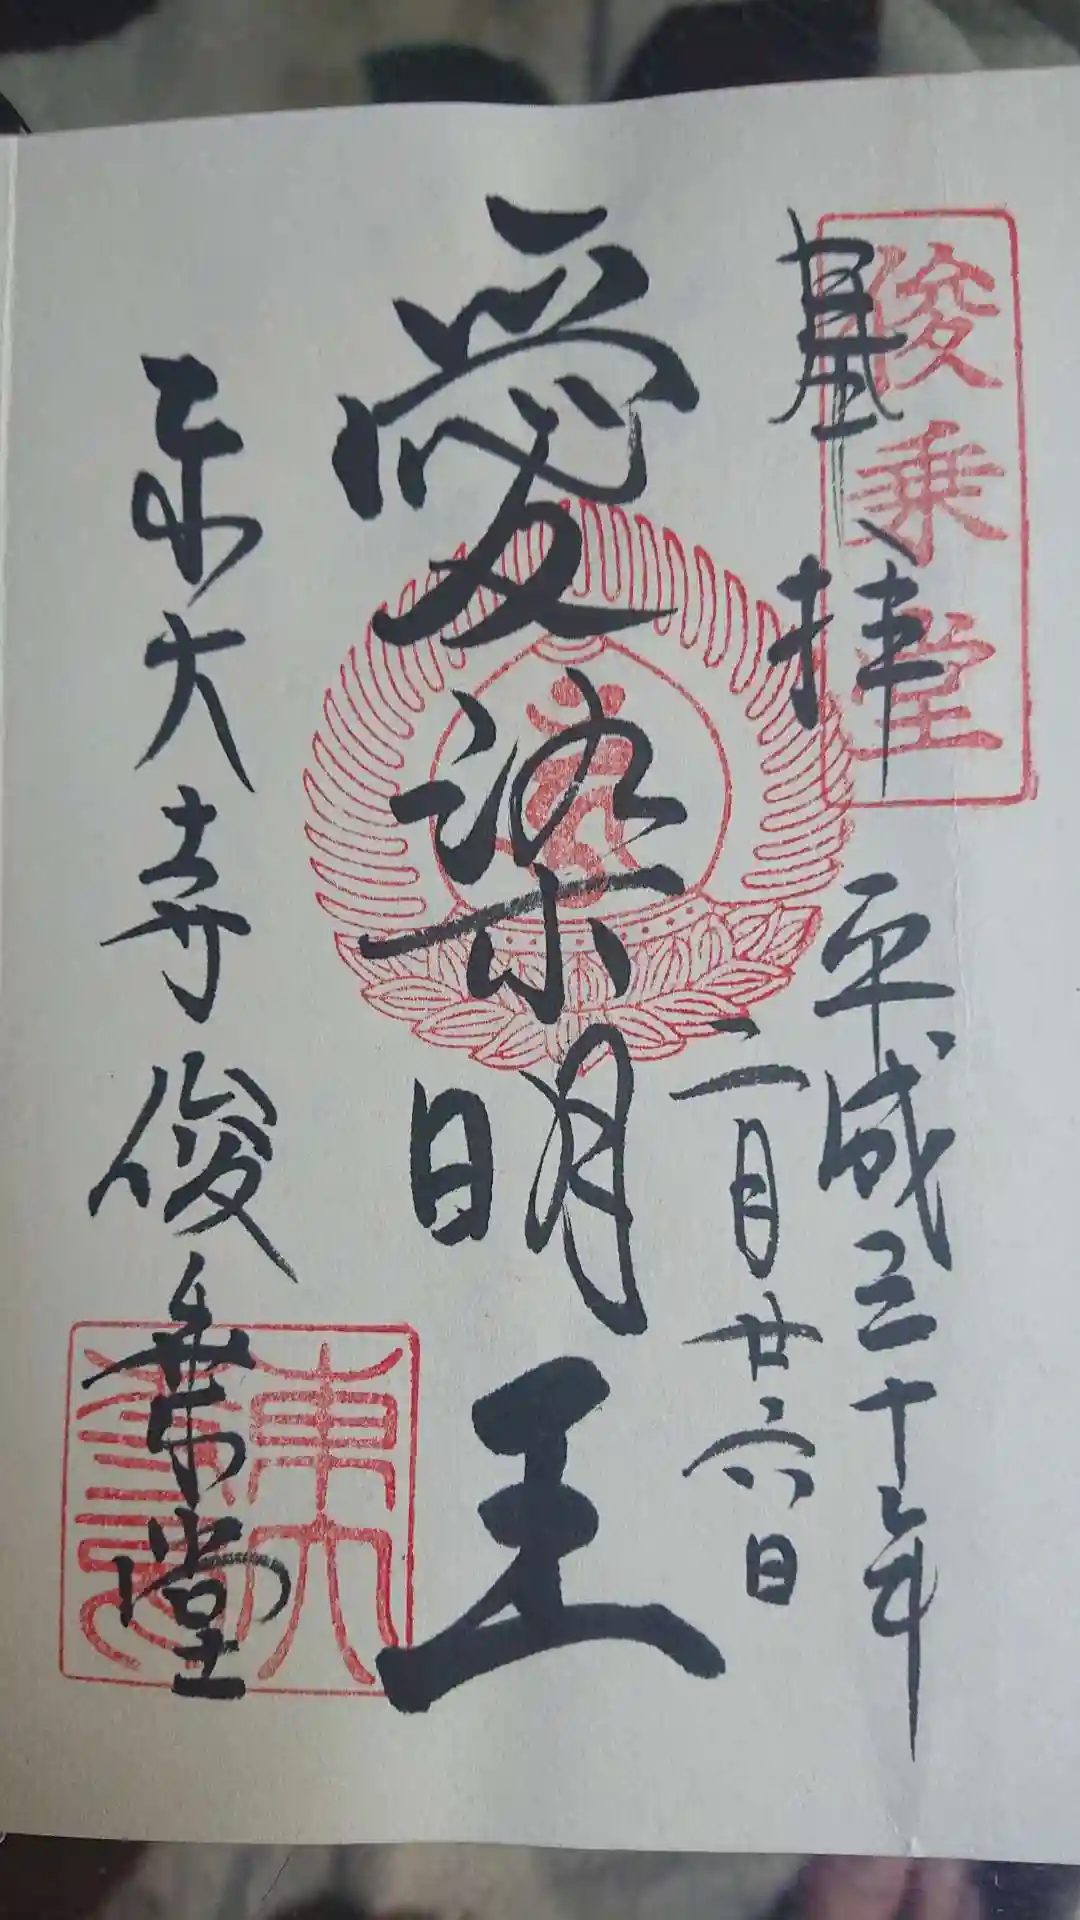 俊乗堂
奉拝
平成三十年
二月廿六日
愛染明王
東大寺俊乗堂
東大寺